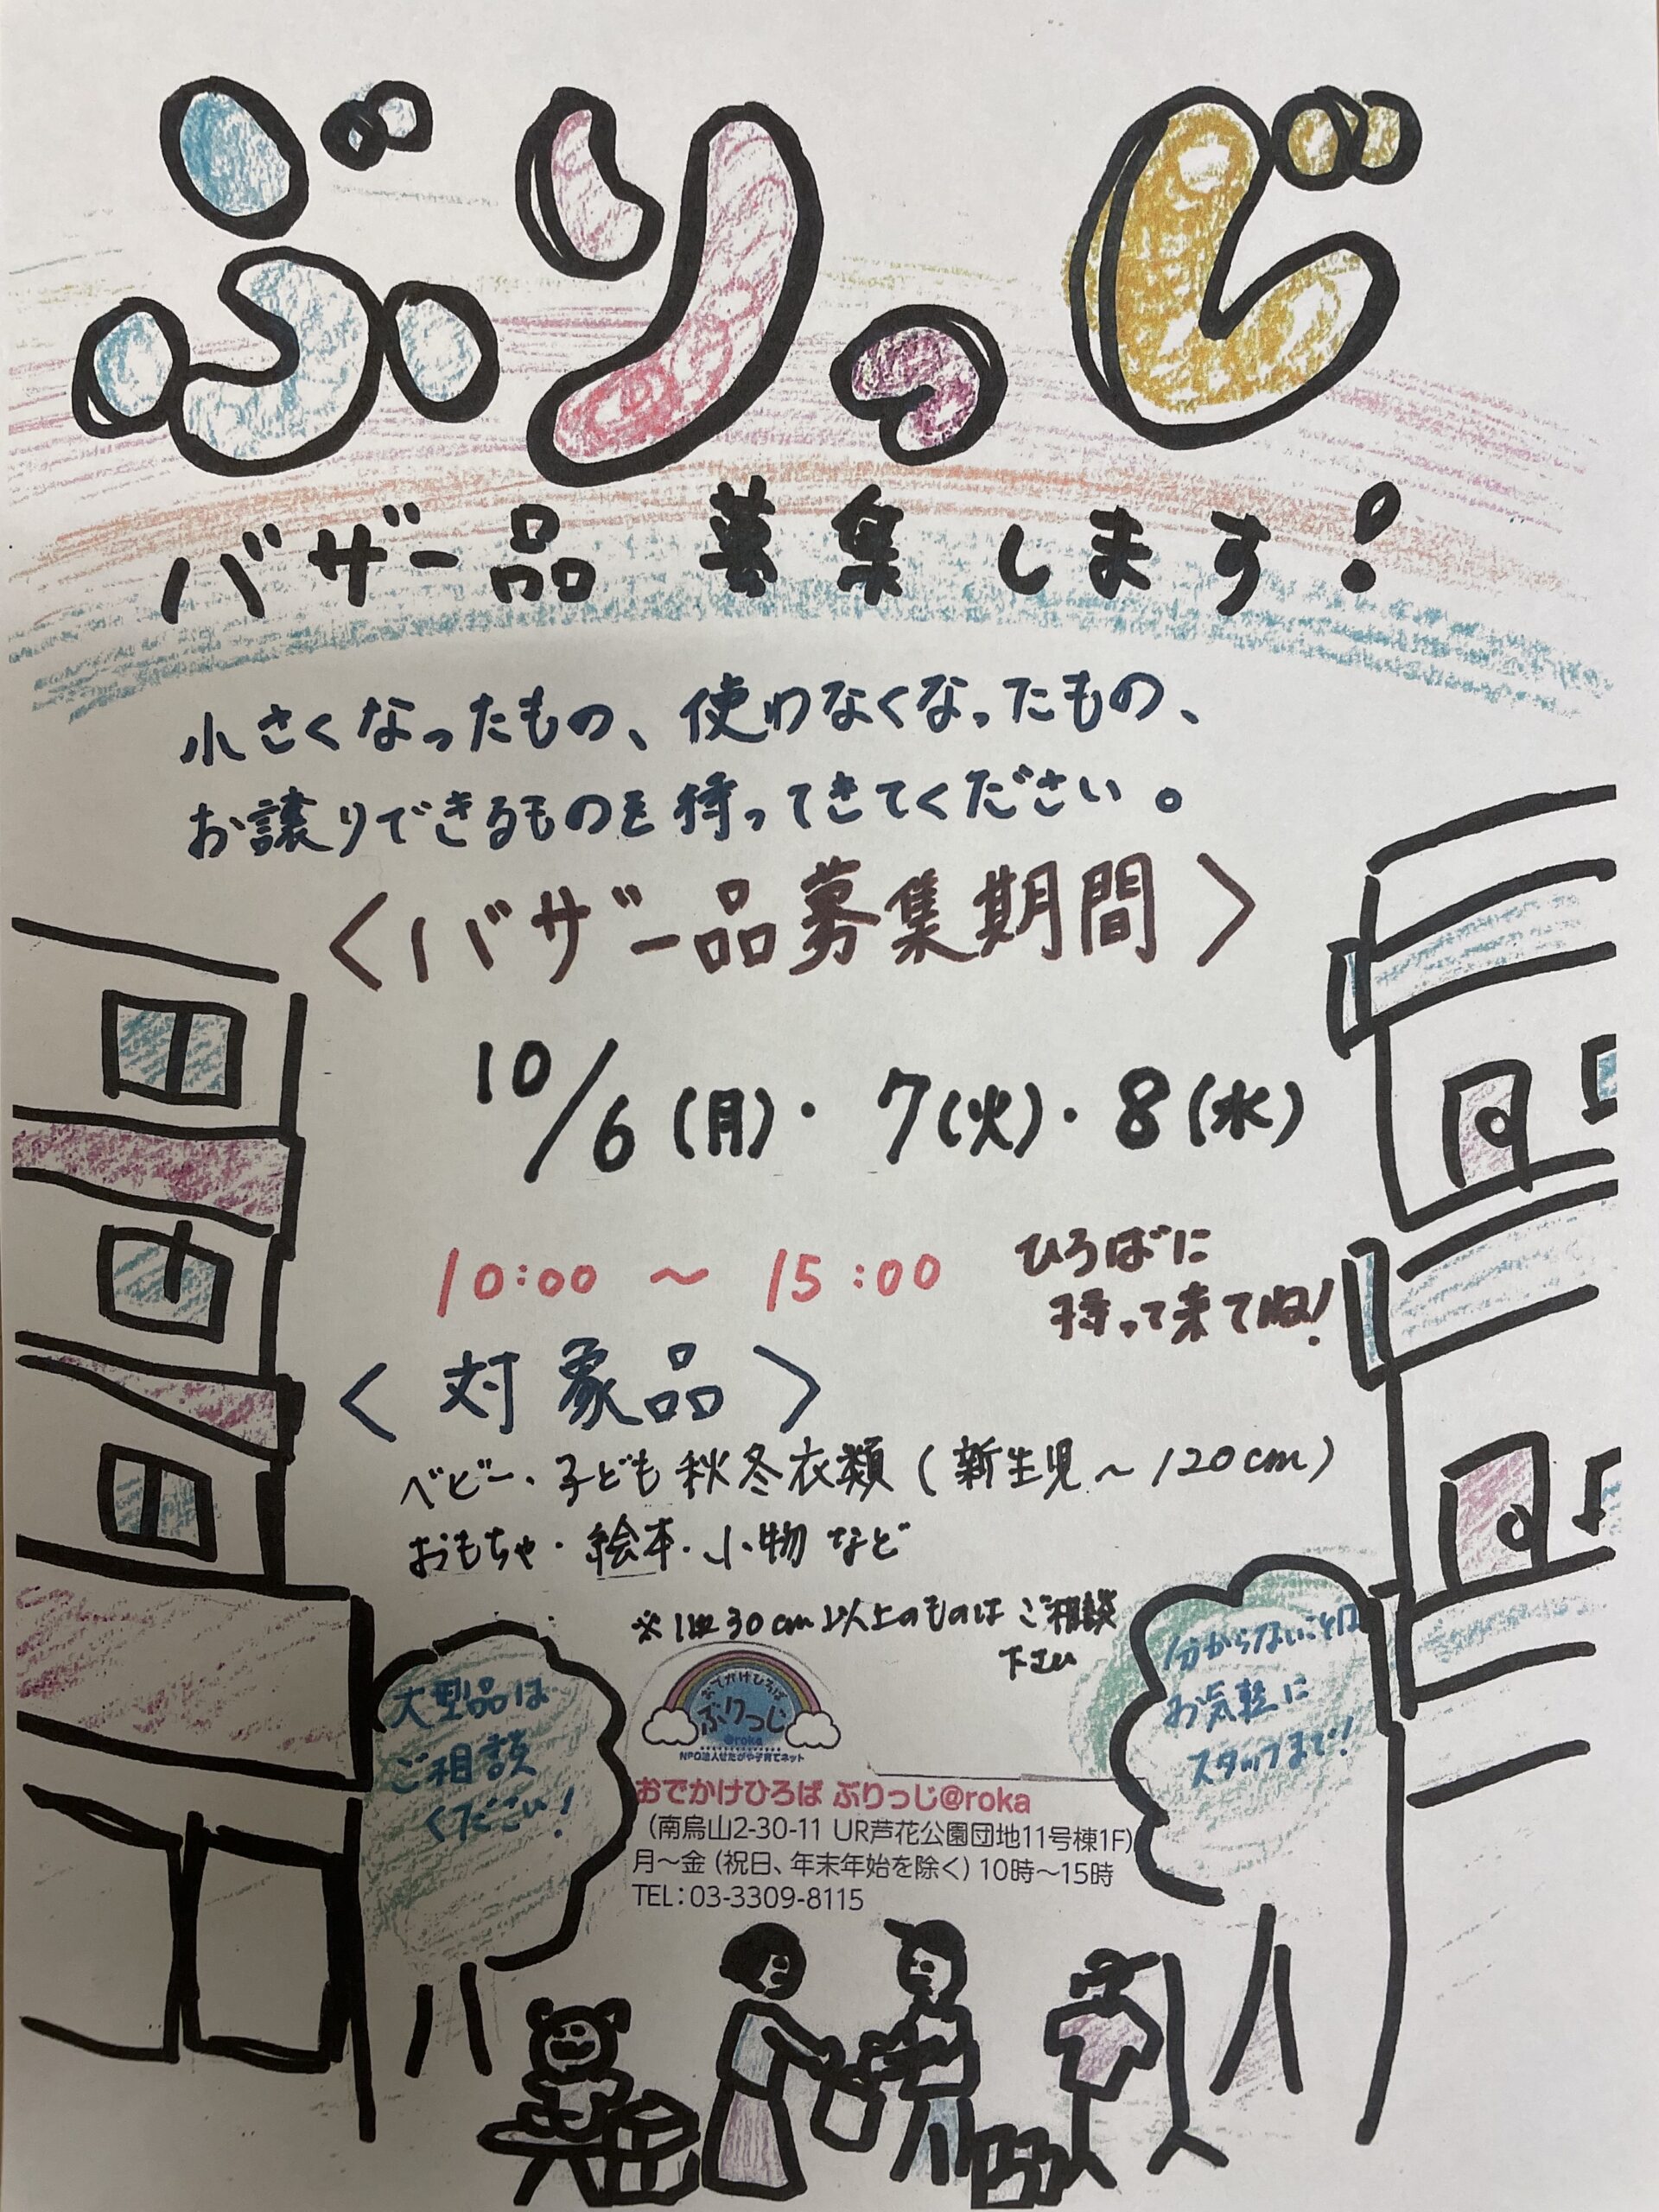 ぶりっじ
バザー品募集します!
小さくなったもの、使わなくなったもの、
お譲りできるものを持ってきてください。
〈バザー品募集期間〉
10/6(月)・7(火)・8(水)
10:00 〜 15:00
ひろばに
持って来てね!
〈対象品〉
ベビー、子ども秋冬衣類(新生児〜120cm)
おもちゃ・絵本・小物など
※1辺30cm以上のものはご相談
下さい
大型品は
ご相談
ください!
分からないことは
お気軽に
スタッフまで!
おでかけひろば
ぶりっじ
@roka
NPO法人せたがや子育てネット
おでかけひろば ぶりっじ@roka
(南烏山2-30-11 UR芦花公園団地11号棟1F)
月〜金(祝日、年末年始を除く)10時〜15時
TEL:03-3309-8115